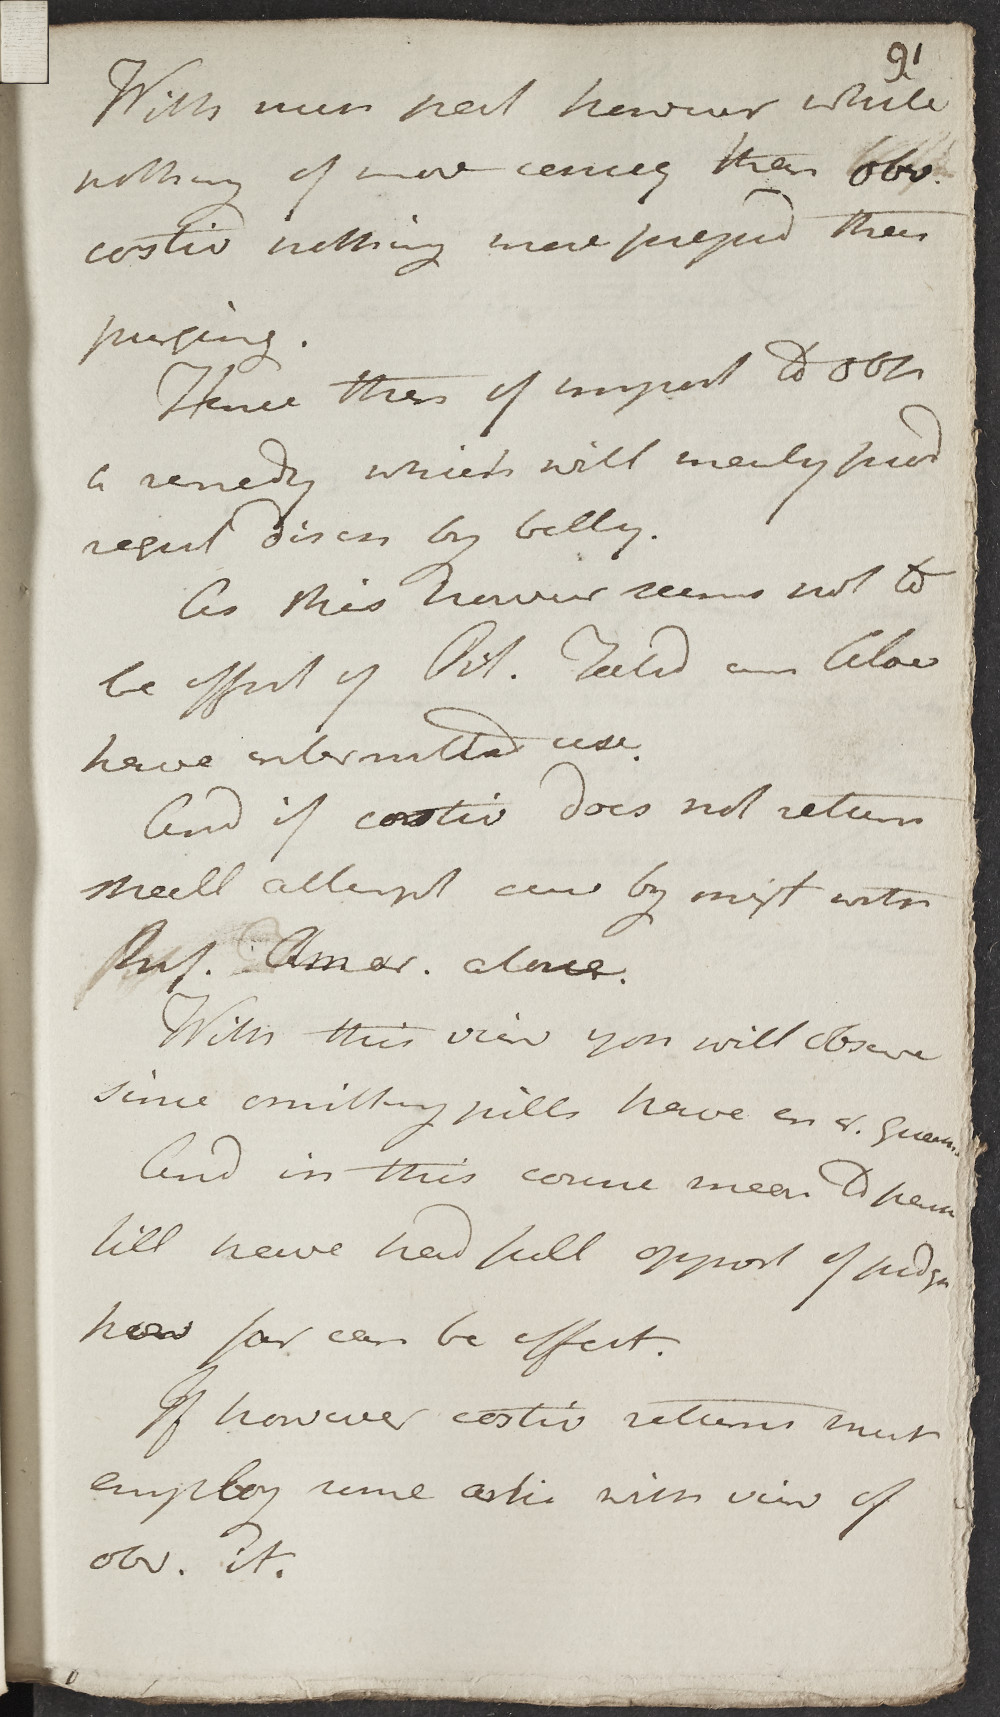 91
With such pat however while
nothing of more conseq than obv.
costiv nothing more prejud than
purging.
Hence then of import to obt
a remedy which will mearly prod
regul disch by belly.
As this however seems not to
be effect of Pil. Aloe
have intermitted use.
And if costiv does not return
shall attempt cure by mixt with
Inf. Amar. alone.
With this view you will observe
since omitting pills have
And in this course mean to
till have had full opport of judg
how far can be effect.
If however costiv returns must
employ some with view of
obv. it.